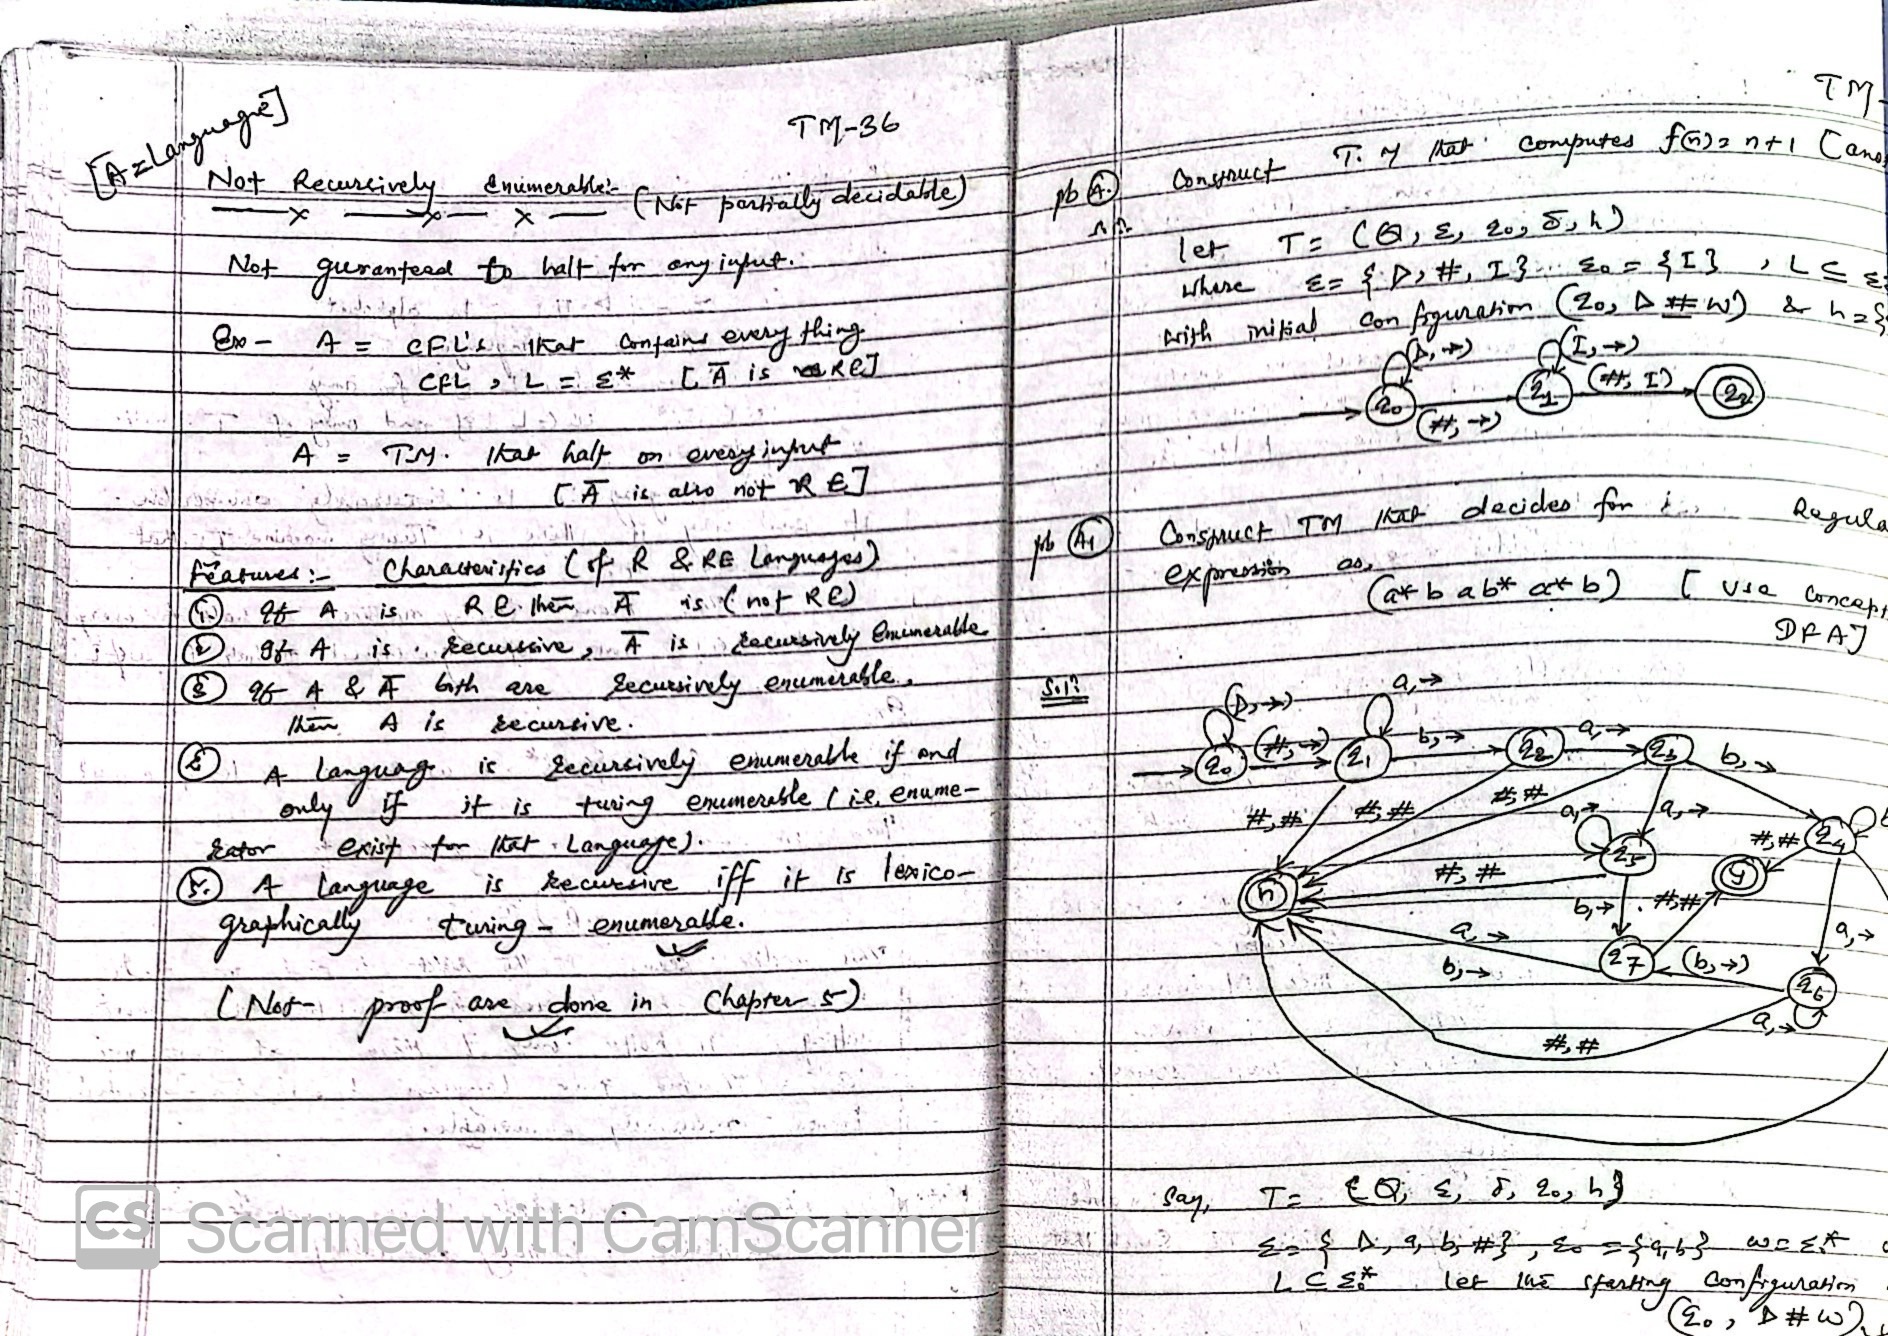 [A = Language]
TM-36
Not Recursively Enumerable:- (Not partially decidable)
Not guranteed to halt for any input.
Ex - A = CFL's that contains every thing
CFL, L = Σ* [Ā is RE]
A = T.M. that halt on every input
[Ā is also not RE]
Features:- Characteristics (of R & RE Languages)
1. If A is RE then Ā is (not RE)
2 If A is recursive, Ā is recursively Enumerable
3 If A & Ā both are recursively enumerable,
then A is recursive.
A language is recursively enumerable if and
only if it is turing enumerable (i.e. enume-
rator exist for that Language).
5. A language is recursive iff it is lexico-
graphically turing - enumerable.
(Not proof are done in Chapter 5)
TM-
pb A. Construct T.M that computes f(n) = n+1
Soln.
let T = (Q, Σ, q0, δ, h)
where Σ = {▷, #, I} Σ0 = {I}, L ⊆
with initial configuration (q0, ▷ # w) & h =
(▷, →) (I, →)
q0 (#, →) q1 (#, I) q2
pb A1 Construct TM that decides for Regula
expression as,
(a* b a b* a* b) [use concept
DFA]
Soln
(▷, →) a, →
q0 (#, →) q1 b, → q2 a, → q3 b, →
#, # #, # #, # a, → a, → #, # q4
q5 y
h #, # b, → #, # a, →
a, → q7 (b, →) q6
b, → a, →
#, #
Say, T = {Q, Σ, δ, q0, h}
Σ = {▷, a, b, #}, Σ0 = {a, b} w = Σ0*
L ⊆ Σ0* let the starting configuration
(q0, ▷ # w)
CS Scanned with CamScanner